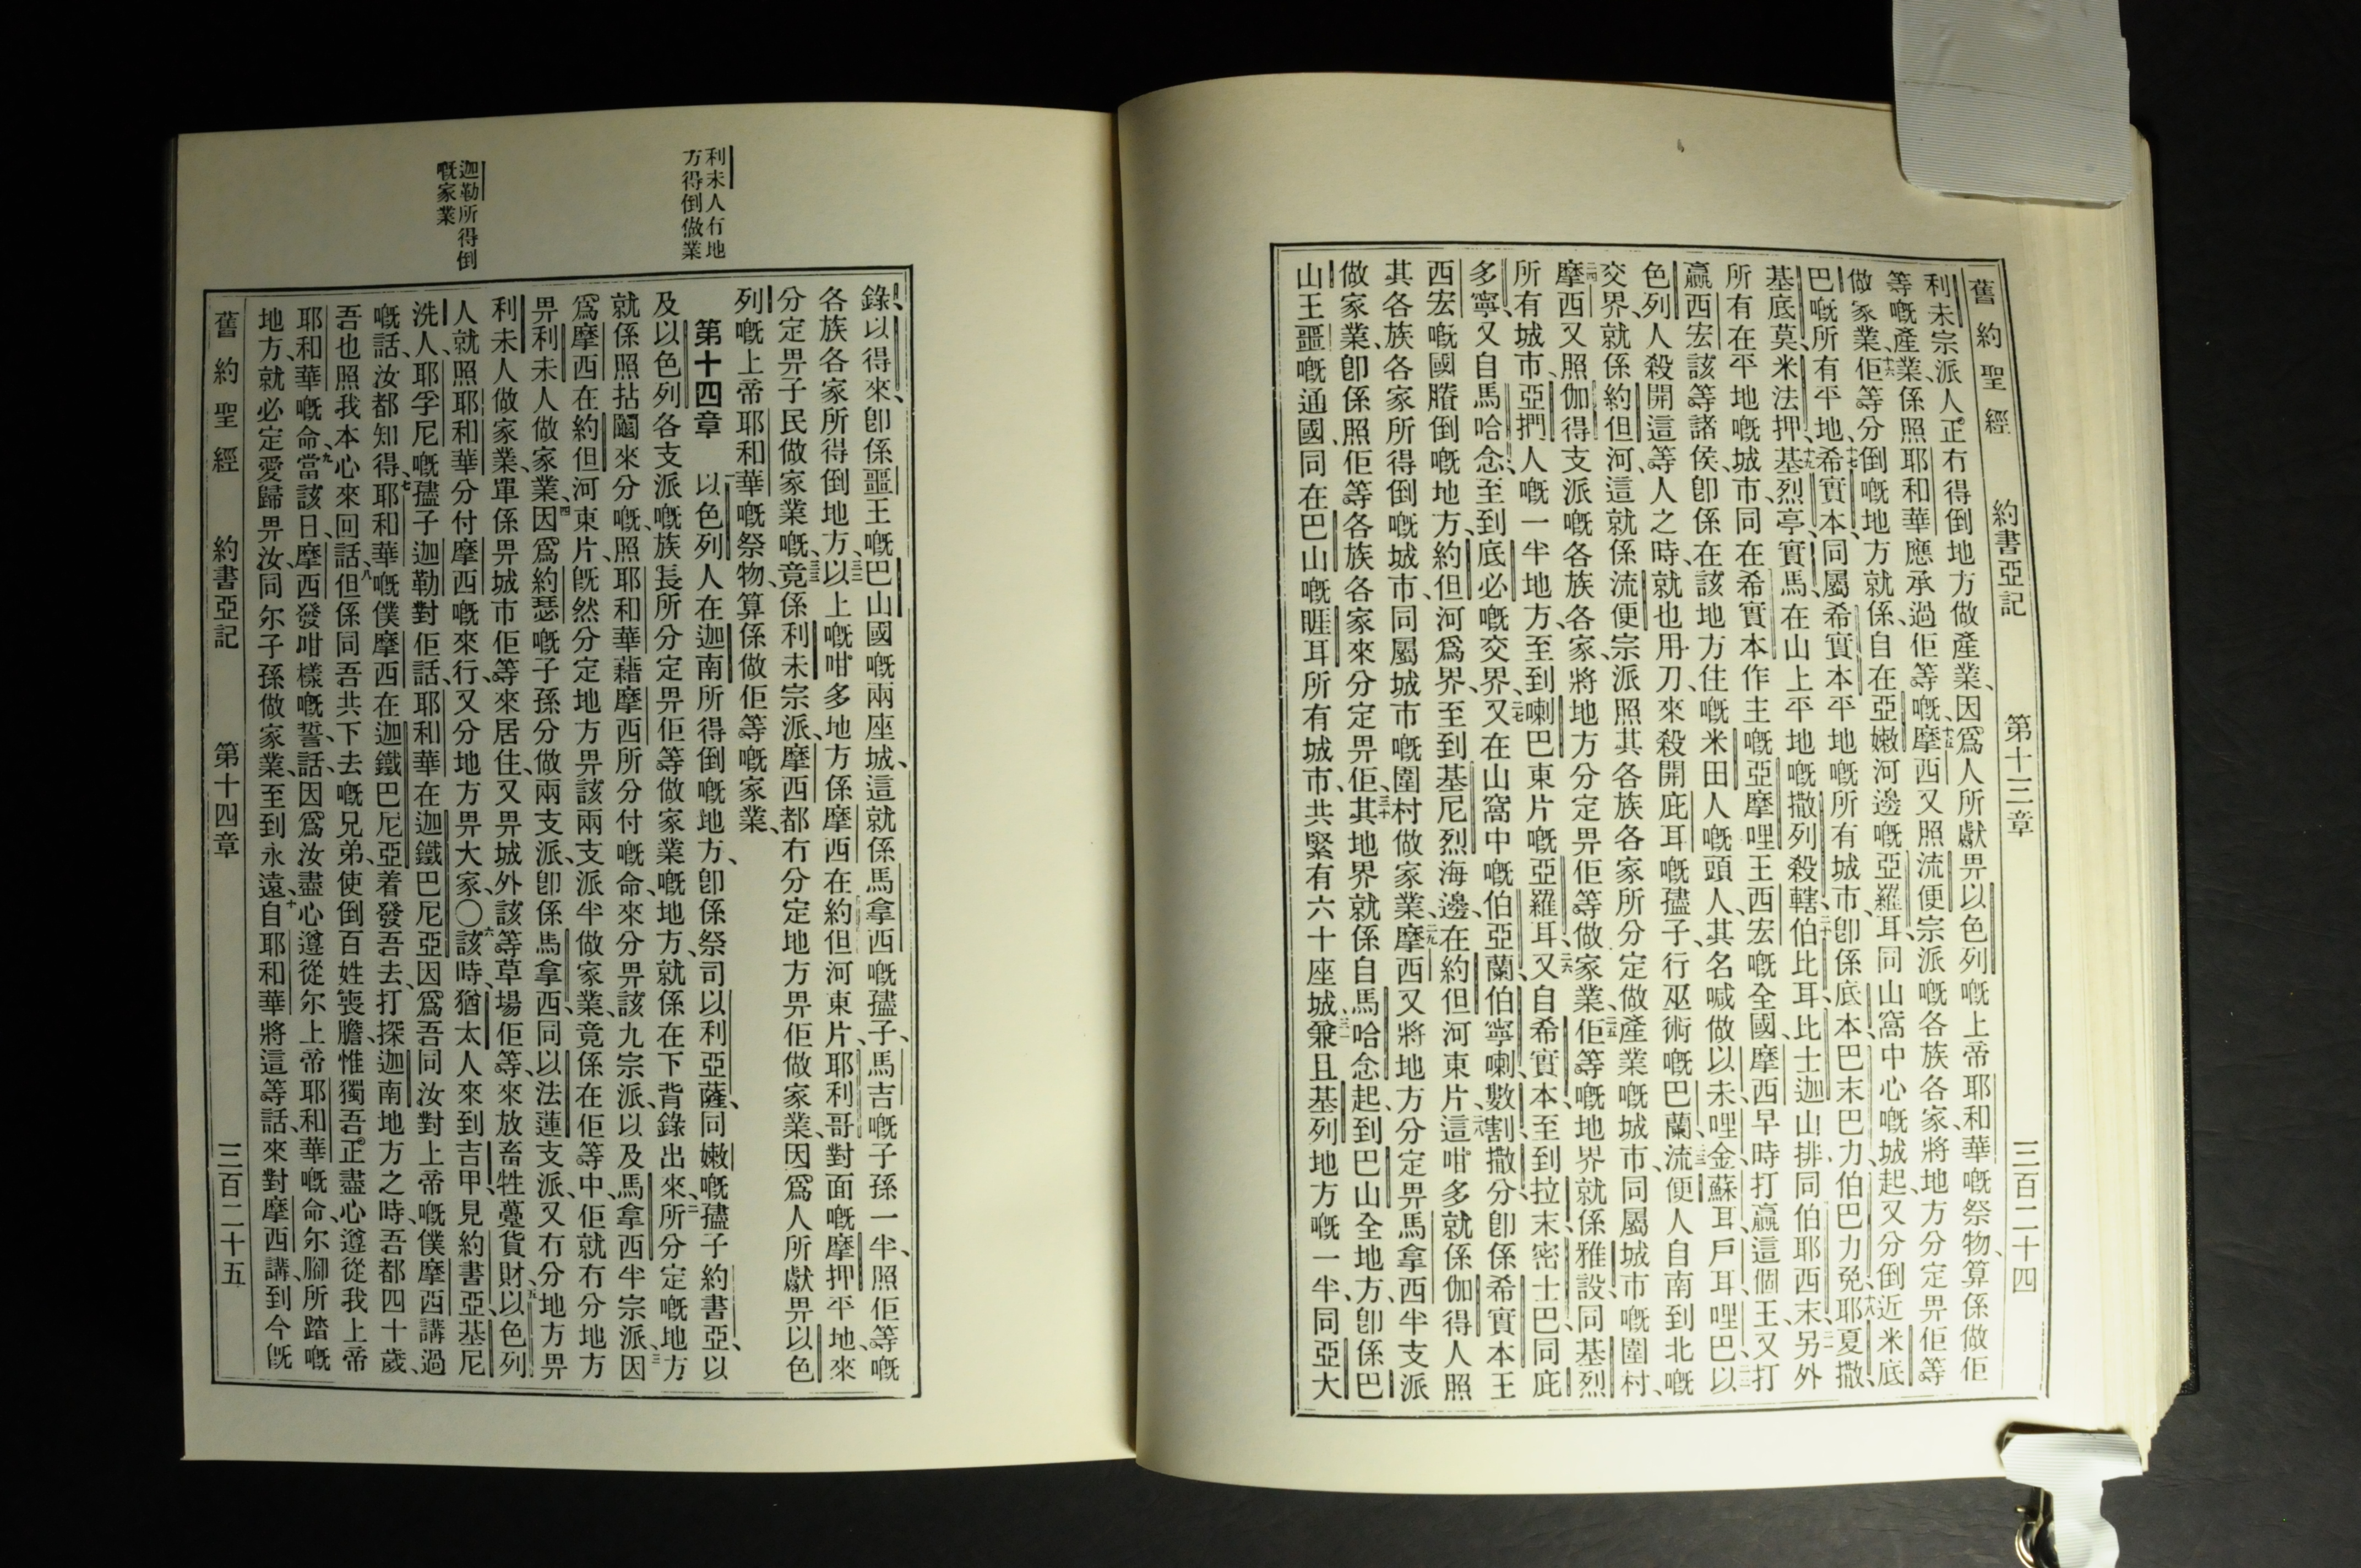 舊約聖經 約書亞記 第十三章 三百二十四
利未宗派人正冇得倒地方做產業、因爲人所獻畀以色列嘅上帝耶和華嘅祭物、算係做佢
等嘅產業、係照耶和華應承過佢等嘅、十五摩西又照流便宗派嘅各族各家、將地方分定畀佢等
做家業、十六佢等分倒嘅地方就係、自在亞嫩河邊嘅亞羅耳、同山窩中心嘅城起、又分倒近米底
巴嘅所有平地、十七希實本、同屬希實本平地嘅所有城市、卽係底本、巴末巴力、伯巴力免、十八耶夏撒、
基底莫、米法押、十九基烈亭、實馬、在山上平地嘅撒列殺轄、二十伯比耳、比士迦山排、同伯耶西末、二一另外
所有在平地嘅城市、同在希實本作主嘅亞摩哩王西宏嘅全國、摩西早時打贏這個王、又打
贏西宏該等諸侯、卽係在該地方住嘅米田人嘅頭人、其名喊做以未、哩金、蘇耳、戶耳、哩巴、二二以
色列人殺開這等人之時、就也用刀、來殺開庇耳嘅孻子、行巫術嘅巴蘭、二三流便人自南到北嘅
交界、就係約但河、這就係流便宗派、照其各族各家所分定做產業嘅城市、同屬城市嘅圍村、
二四摩西又照伽得支派嘅各族各家、將地方分定畀佢等做家業、二五佢等嘅地界就係雅設、同基烈
所有城市、亞捫人嘅一半地方、至到喇巴東片嘅亞羅耳、二六又自希實本、至到拉末密士巴、同庇
多寧、又自馬哈念、至到底必嘅交界、二七又在山窩中嘅伯亞蘭、伯寧喇、數割、撒分、卽係希實本王
西宏嘅國賸倒嘅地方、約但河爲界、至到基尼烈海邊、在約但河東片、二八這咁多就係伽得人照
其各族各家所得倒嘅城市、同屬城市嘅圍村做家業、二九摩西又將地方分定畀馬拿西半支派
做家業、卽係照佢等各族各家來分定畀佢、三十其地界就係自馬哈念起、到巴山全地方、卽係巴
山王噩嘅通國、同在巴山嘅睚耳所有城市、共緊有六十座城、三一兼且基列地方嘅一半、同亞大
利未人冇地
方得倒做業
迦勒所得倒
嘅家業
錄、以得來、卽係噩王嘅巴山國嘅兩座城、這就係馬拿西嘅孻子、馬吉嘅子孫一半、照佢等嘅
各族各家所得倒地方、三二以上嘅咁多地方、係摩西在約但河東片、耶利哥對面嘅摩押平地、來
分定畀子民做家業嘅、三三竟係利未宗派、摩西都冇分定地方畀佢做家業、因爲人所獻畀以色
列嘅上帝耶和華嘅祭物、算係做佢等嘅家業、
第十四章 一以色列人在迦南所得倒嘅地方、卽係祭司以利亞薩、同嫩嘅孻子約書亞、以
及以色列各支派嘅族長所分定畀佢等做家業嘅地方、就係在下背錄出來、二所分定嘅地方
就係照拈鬮來分嘅、照耶和華藉摩西所分付嘅命、來分畀該九宗派、以及馬拿西半宗派、三因
爲摩西在約但河東片、旣然分定地方畀該兩支派半做家業、竟係在佢等中、佢就冇分地方
畀利未人做家業、四因爲約瑟嘅子孫分做兩支派、卽係馬拿西、同以法蓮支派、又冇分地方畀
利未人做家業、單係畀城市佢等來居住、又畀城外該等草場佢等、來放畜牲躉貨財、五以色列
人就照耶和華分付摩西嘅來行、又分地方畀大家、〇六該時、猶太人來到吉甲見約書亞、基尼
洗人、耶孚尼嘅孻子迦勒對佢話、耶和華在迦鐵巴尼亞因爲吾同汝對上帝嘅僕摩西講過
嘅話、汝都知得、七耶和華嘅僕摩西、在迦鐵巴尼亞着發吾去、打探迦南地方之時、吾都四十歲、
吾也照我本心來回話、八但係同吾共下去嘅兄弟、使倒百姓喪膽、惟獨吾正盡心遵從我上帝
耶和華嘅命、九當該日、摩西發咁樣嘅誓、話、因爲汝盡心遵從尔上帝耶和華嘅命、尔腳所踏嘅
地方、就必定愛歸畀汝、同尔子孫做家業、至到永遠、十自耶和華將這等話、來對摩西講、到今旣
舊約聖經 約書亞記 第十四章 三百二十五